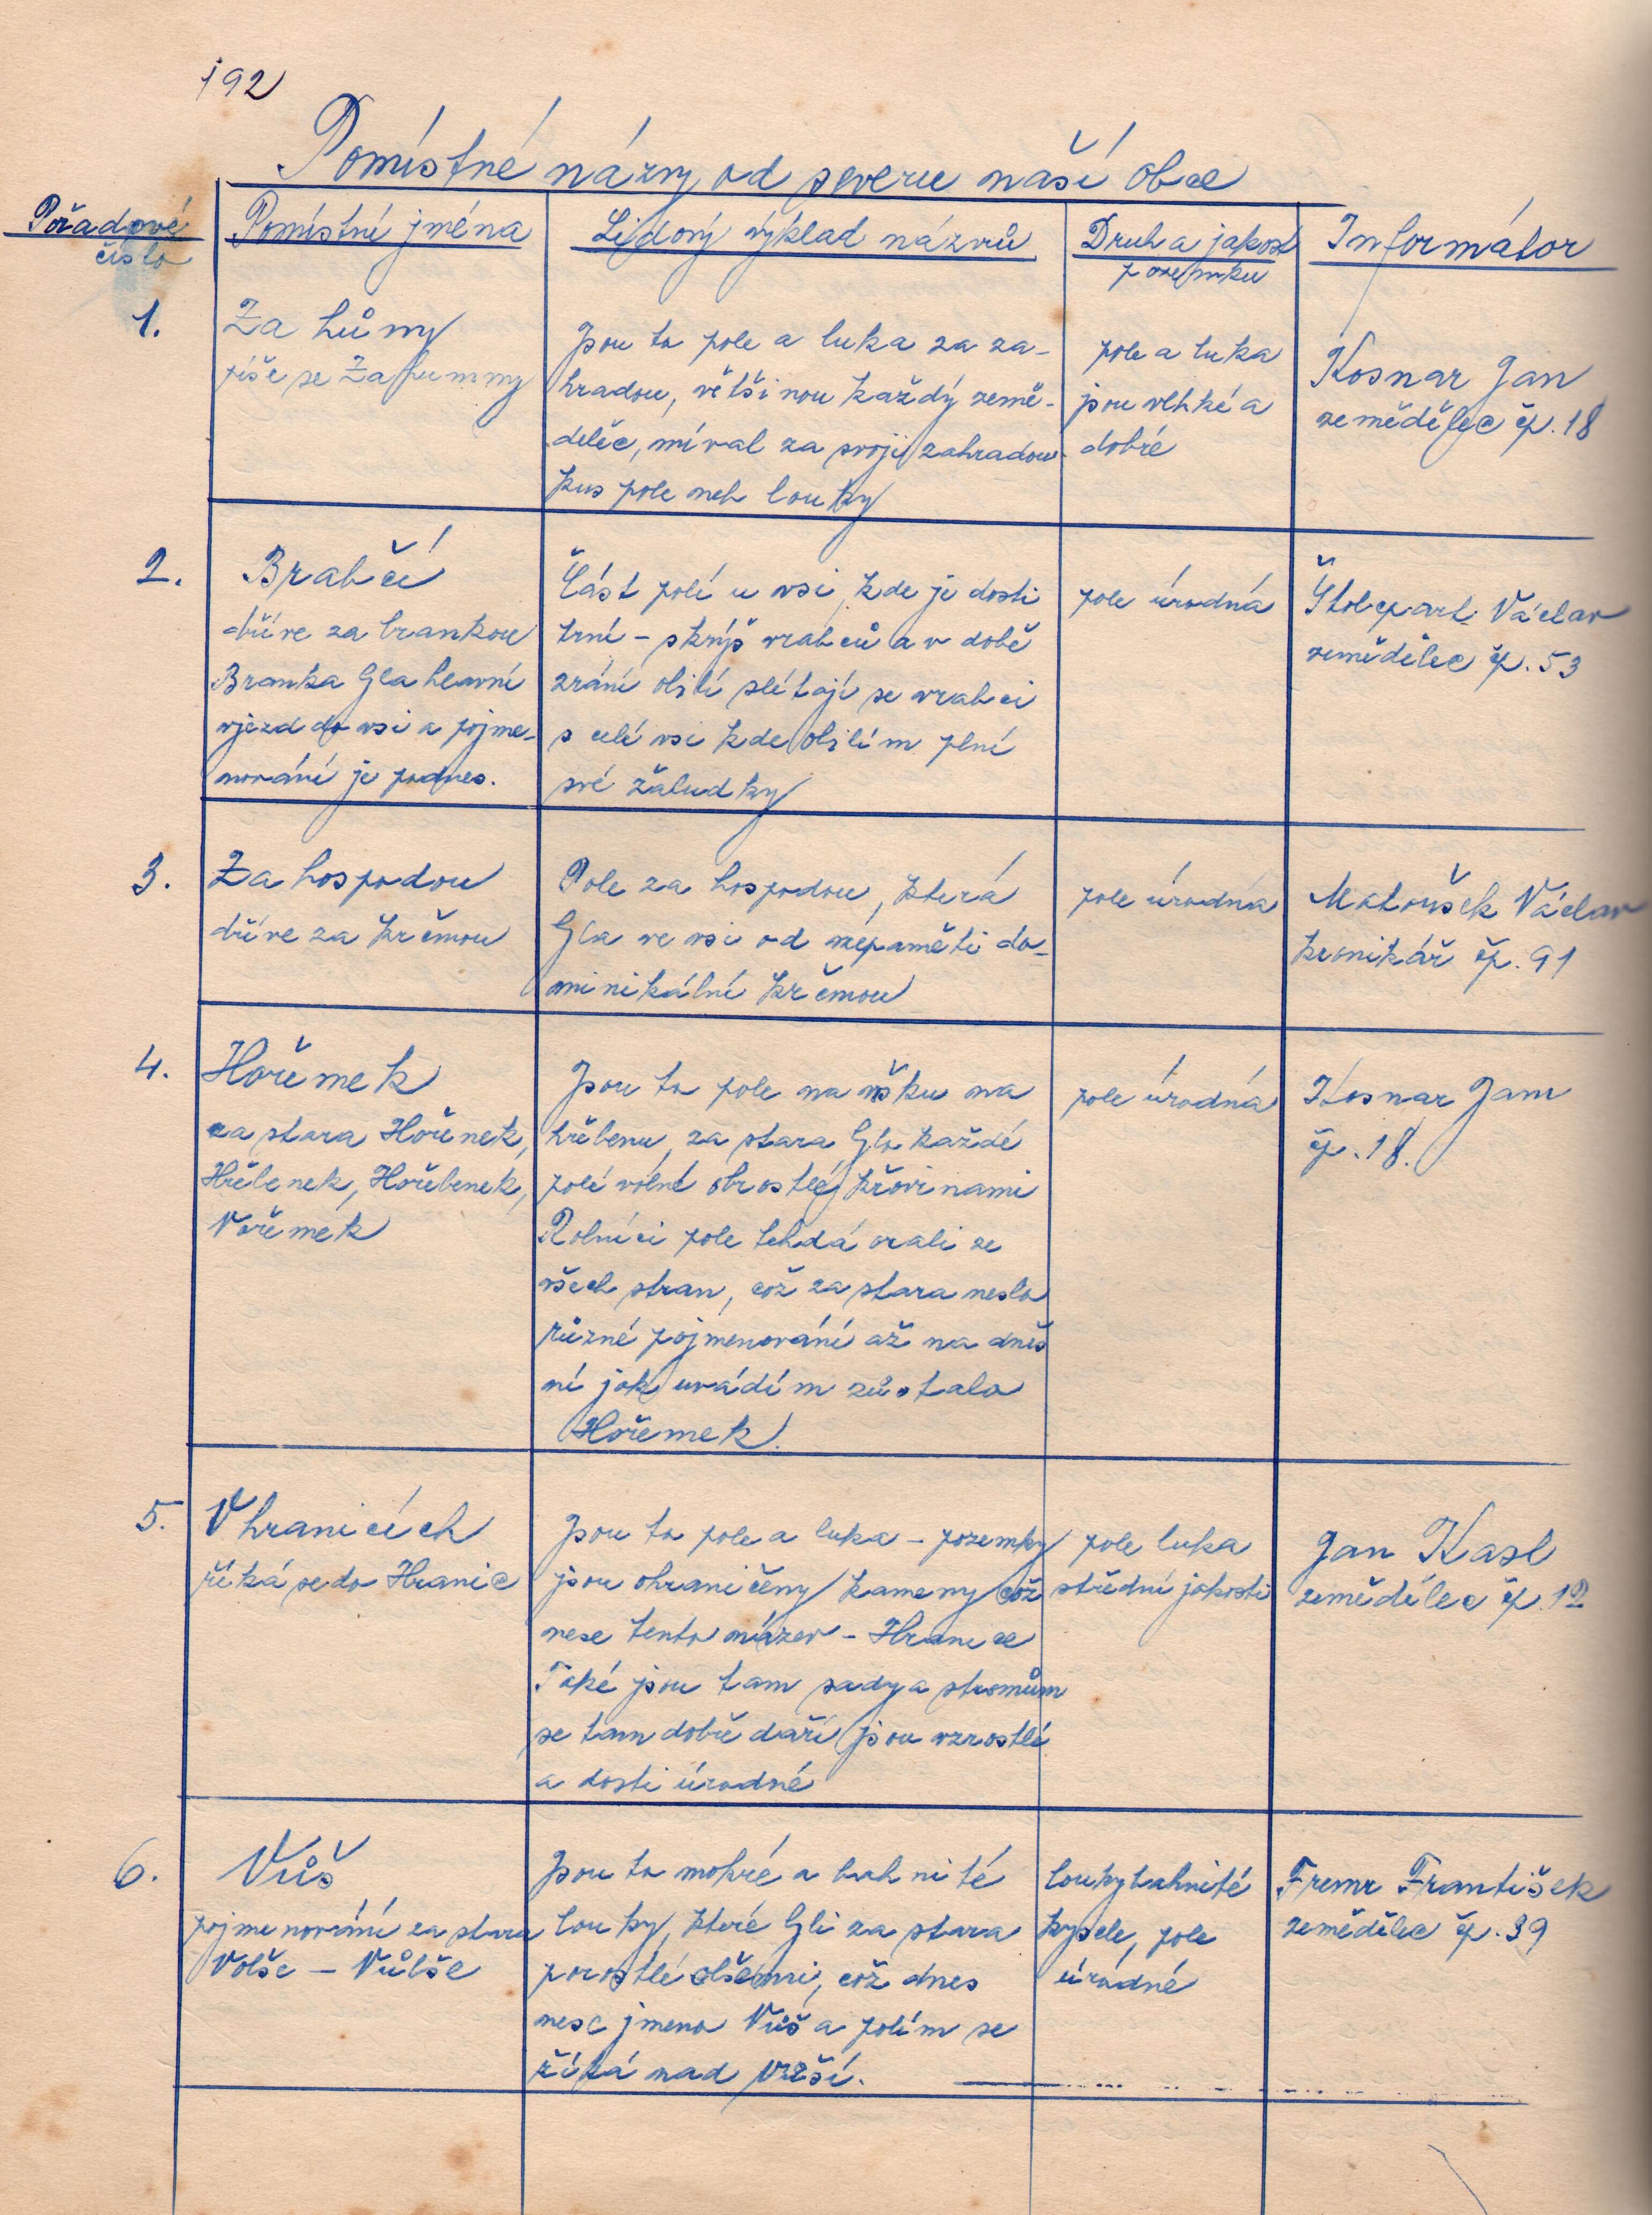 192
Pomístné názvy od severu naší obce
Pořadové
číslo
Pomístní jména
Lidový výklad názvů
Druh a jakost
pozemku
Informátor
1.
Za hůmny
píše se Za humny
Jsou to pole a luka za za-
hradou, většinou každý země-
dělec, míval za svoji zahradou
kus pole neb louky
pole a luka
jsou vlhké a
dobré
Kosnar Jan
zemědělec čp. 18
2.
Brabčí
dříve za brankou
Branka byla hlavní
vjezd do vsi a pojme-
nování je podnes.
Část polí u vsi, kde je dosti
trní - skrýš vrabců a v době
zrání obilí slétají se vrabci
s celé vsi kde obilím plní
své žaludky
pole úrodná
Václav
zemědělec čp. 53
3.
Za hospodou
dříve za krčmou
Pole za hospodou, která
byla ve vsi od nepaměti do-
minikální krčmou
pole úrodná
Matoušek Václav
čp. 91
4.
Hořemek
za stara Hořenek,
Hřebenek, Hořebenek,
Vořemek
Jsou to pole na vršku na
hřbenu, za stara bylo každé
polé volné obrostlé křovinami
Rolníci pole tehdá orali ze
všech stran, což za stara neslo
různé pojmenování až na dneš
ní jak uvádím zůstalo
Hořemek.
pole úrodná
Kosnar Jan
čp. 18.
5.
V hranicích
říká se do Hranic
Jsou to pole a luka - pozemky
jsou ohraničeny kameny což
nese tento název - Hranice
Také jsou tam sady a stromům
se tam dobře daří jsou vzrostlé
a dosti úrodné
pole luka
střední jakosti
Jan Kasl
zemědělec čp. 12
6.
Vůš
pojmenování za stara
Volše - Vůlše
Jsou to mokré a bahnité
louky, které byli za stara
porostlé olšemi, což dnes
nese jmeno Vůš a polím se
říká nad Vrší.
louky bahnité
kysele, pole
úrodné
Fremr František
zemědělec čp. 39